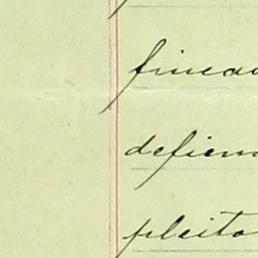 fincad
defien
pleito